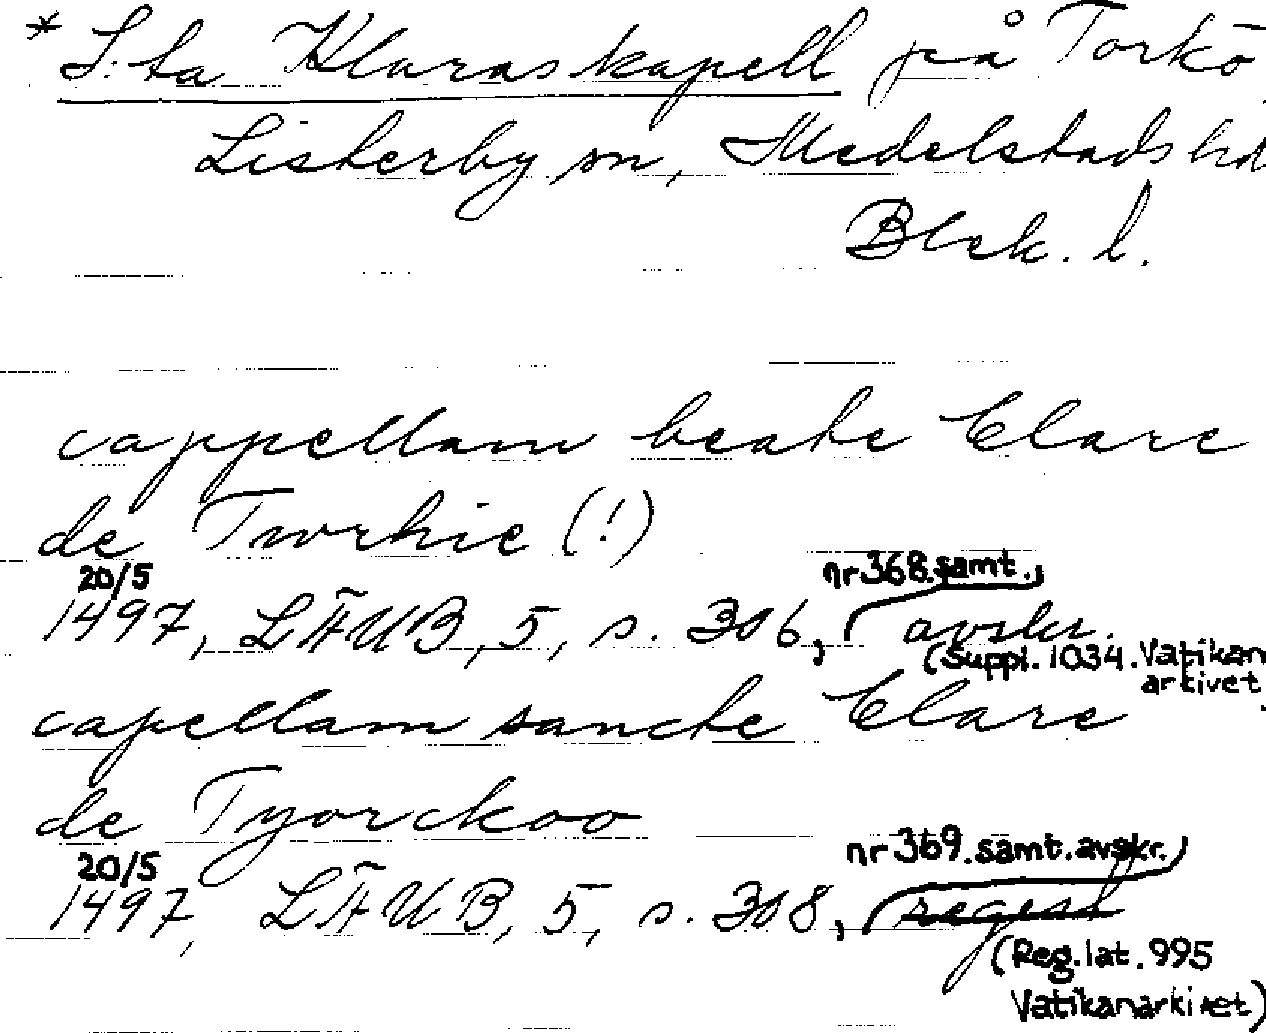 * S:ta Klaras kapell på Torkö
Listerby sn, Medelstads hd
Blek. l.
cappellam beate Clare
de Tworkie (!)
20/5 nr 368. samt.
1497, LÄUB, 5, s. 306, avskr.
(Suppl. 1034. Vatikan
arkivet
capellam sancte Clare
de Tyorckoo
20/5 nr 369. samt. avskr.
1497, LÄUB, 5, s. 308, regest
(Reg. lat. 995
Vatikanarkivet)